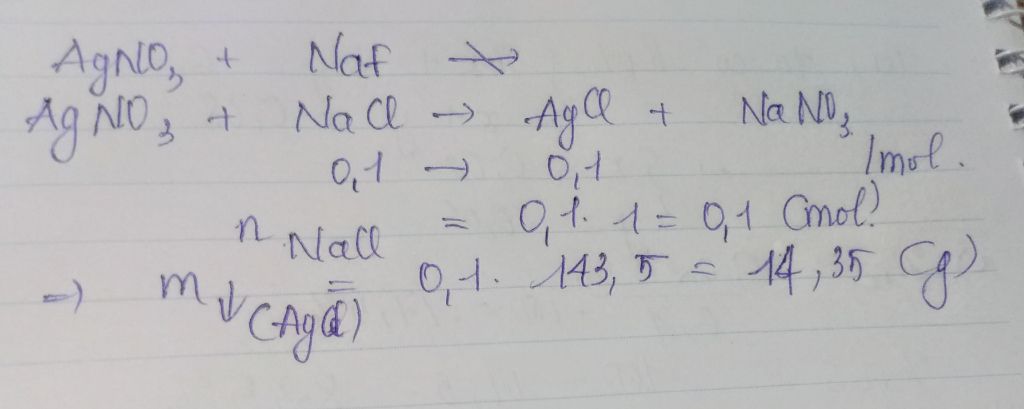 AgNO3 + NaF ↛
AgNO3 + NaCl → AgCl + NaNO3
0,1 → 0,1 /mol.
n NaCl = 0,1. 1 = 0,1 (mol)
=) m↓(AgCl) = 0,1. 143,5 = 14,35 (g)